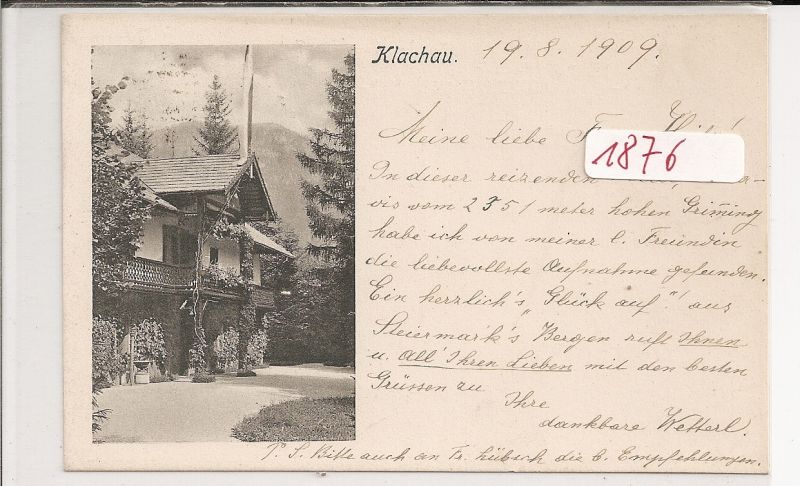 Klachau. 19. 8. 1909.
Meine liebe
1876
In dieser reizenden
vis vom 2351 meter hohen Grimming
habe ich von meiner l. Freundin
die liebevollste Aufnahme gefunden.
Ein herzlich's "Glück auf"! aus
Steiermark's Bergen ruft Ihnen
u. All' Ihren Lieben mit den besten
Grüssen zu
Ihre
dankbare Wetterl.
P. S. Bitte auch an Fr. Hübsch die b. Empfehlungen.